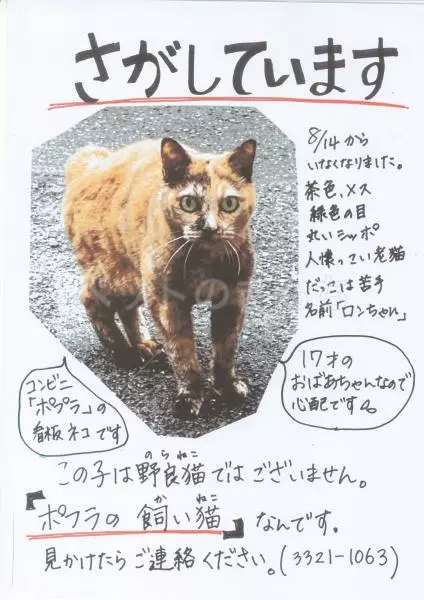 さがしています
8/14から
いなくなりました。
茶色、メス
緑色の目
丸いシッポ
人懐っこい老猫
だっこは苦手
名前「ロンちゃん」
17才の
おばあちゃんなので
心配です。
コンビニ
「ポプラ」の
看板ネコです
この子は野良猫ではございません。
のらねこ
『ポプラの飼い猫』なんです。
かねこ
見かけたらご連絡ください。(3321-1063)